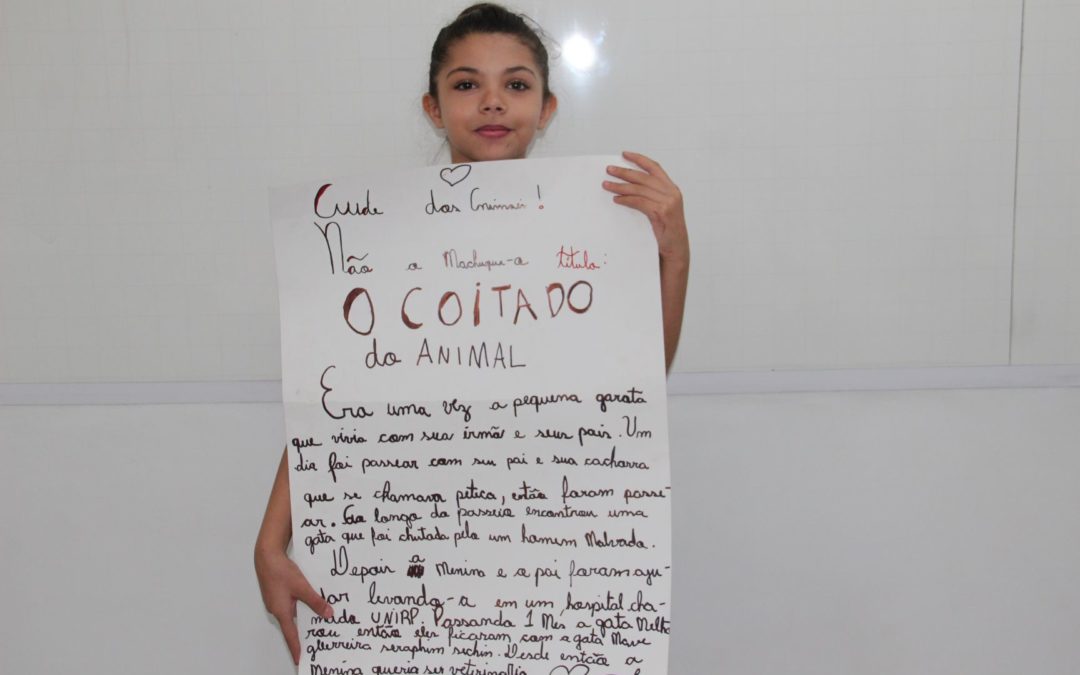 Cuide dos Animais!
Não o Machuque-o título:
O COITADO
do ANIMAL
Era uma vez a pequena garota
que vivia com sua irmã e seus pais. Um
dia foi passear com seu pai e sua cachorra
que se chamava petica, então foram passe-
ar. Ao longo do passeio encontrou uma
gata que foi chutada pelo um homem Malvado.
Depois a Menina e o pai foram aju-
dar levando-a em um hospital cha-
mado UNIRP. Passando 1 Mês a gata Melho
rou então eles ficaram com a gata Mave
guerreira seraphim sichin. Desde então a
Menina queria ser